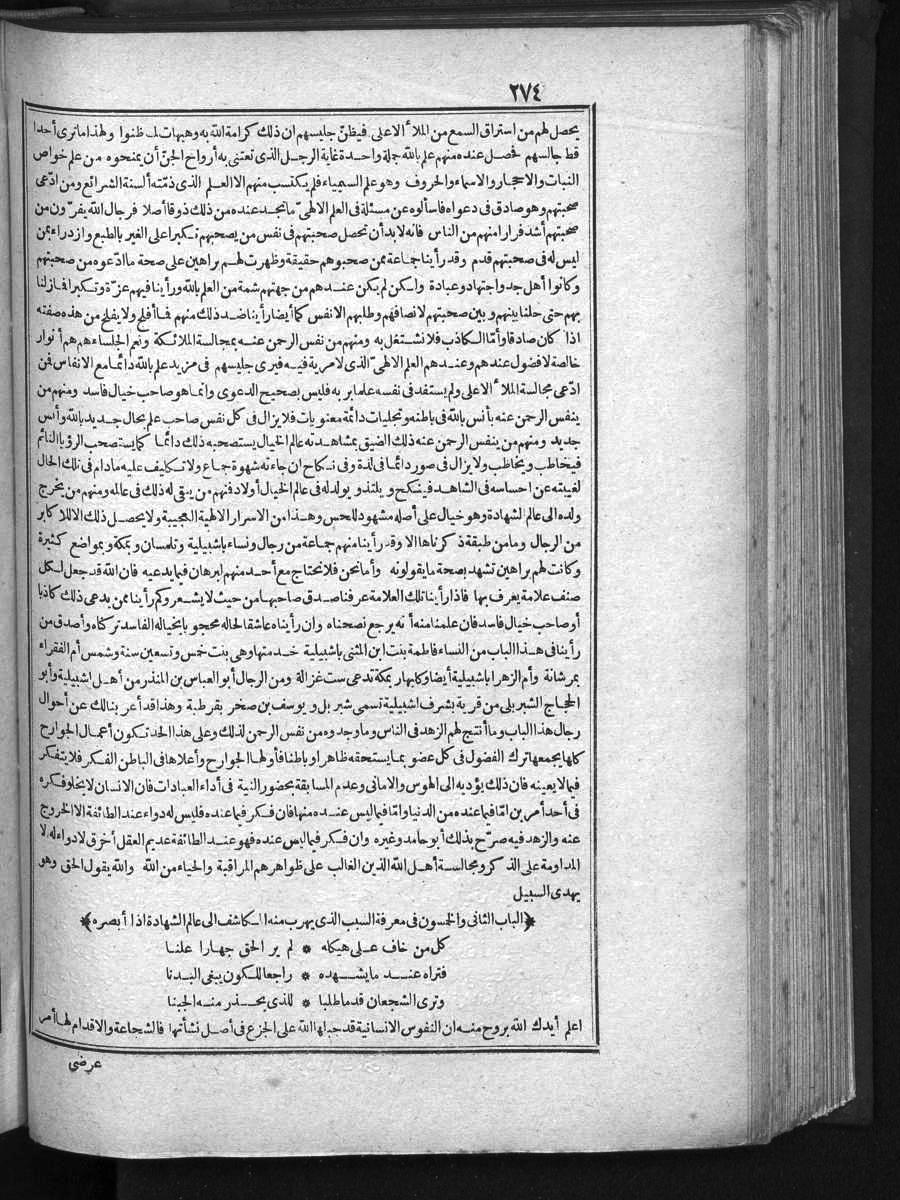 ٢٧٤
يحصل لهم من استراق السمع من الملأ الاعلى فيظنّ جليسهم ان ذلك كرامة الله به وهيهات لما ظنوا ولهذا ما ترى أحدا
قط جالسهم فحصل عنده منهم علم بالله جملة واحدة غاية الرجل الذى تعتنى به أرواح الجنّ أن يمنحوه من علم خواص
النبات والاحجار والاسماء والحروف وهو علم السيمياء فلم يكتسب منهم الا العلم الذى ذمّته ألسنة الشرائع ومن ادّعى
صحبتهم وهو صادق فى دعواه فاسألوه عن مسئلة فى العلم الالهىّ ما تجد عنده من ذلك ذوقا أصلا فرجال الله يفرّون من
صحبتهم أشد فرارا منهم من الناس فانه لا بد أن تحصل صحبتهم فى نفس من يصحبهم تكبرا على الغير بالطبع وازدراء بمن
ليس له فى صحبتهم قدم وقد رأينا جماعة ممن صحبوهم حقيقة وظهرت لهم براهين على صحة ما ادّعوه من صحبتهم
وكانوا أهل جد واجتهاد وعبادة ولكن لم يكن عندهم من جهتهم شمة من العلم بالله ورأينا فيهم عزّة وتكبرا فما زلنا
بهم حتى حلنا بينهم وبين صحبتهم لانصافهم وطلبهم الانفس كما أيضا رأينا ضد ذلك منهم فما أفلح ولا يفلح من هذه صفته
اذا كان صادقا وأمّا الكاذب فلا نشتغل به ومنهم من نفس الرحمن عنه بمجالسة الملائكة ونعم الجلساء هم هم أنوار
خالصة لا فضول عندهم وعندهم العلم الالهىّ الذى لا مرية فيه فيرى جليسهم فى مزيد علم بالله دائما مع الانفاس فمن
ادّعى مجالسة الملأ الاعلى ولم يستفد فى نفسه علما بربه فليس بصحيح الدعوى وانما هو صاحب خيال فاسد ومنهم من
ينفس الرحمن عنه بأنس بالله فى باطنه وتجليات دائمة معنويات فلا يزال فى كل نفس صاحب علم بحال جديد بالله وأنس
جديد ومنهم من ينفس الرحمن عنه ذلك الضيق بمشاهدته عالم الخيال يستصحبه ذلك دائما كما يستصحب الرؤيا النائم
فيخاطب ويخاطب ولا يزال فى صور دائما فى لذة وفى نكاح ان جاءته شهوة جماع ولا تكليف عليه ما دام فى تلك الحال
لغيبته عن احساسه فى الشاهد فينكح ويلتذ ويولد له فى عالم الخيال أولاد فمنهم من يبقى له ذلك فى عالمه ومنهم من يخرج
ولده الى عالم الشهادة وهو خيال على أصله مشهود للحس وهذا من الاسرار الالهية العجيبة ولا يحصل ذلك الا للاكابر
من الرجال وما من طبقة ذكرناها الا وقد رأينا منهم جماعة من رجال ونساء باشبيلية وتلمسان وبمكة وبمواضع كثيرة
وكانت لهم براهين تشهد بصحة ما يقولونه وأما نحن فلا نحتاج مع أحد منهم لبرهان فيما يدعيه فان الله قد جعل لكل
صنف علامة يعرف بها فاذا رأينا تلك العلامة عرفنا صدق صاحبها من حيث لا يشعر وكم رأينا ممن يدعى ذلك كاذبا
أو صاحب خيال فاسد فان علمنا منه أنه يرجع نصحناه وان رأيناه عاشقا لحاله محجوبا بخياله الفاسد تركناه وأصدق من
رأينا فى هذا الباب من النساء فاطمة بنت ابن المثنى باشبيلية خدمتها وهى بنت خمس وتسعين سنة وشمس أم الفقراء
بمرشانة وأم الزهرا باشبيلية أيضا وكلبهار بمكة تدعى ست غزالة ومن الرجال أبو العباس بن المنذر من أهل اشبيلية وأبو
الحجاج الشبربلى من قرية بشرف اشبيلية تسمى شبربل ويوسف بن صخر بقرطبة وهذا قد أعربنا لك عن أحوال
رجال هذا الباب وما أنتج لهم الزهد فى الناس وما وجدوه من نفس الرحمن لذلك وعلى هذا الحد تكون أعمال الجوارح
كلها يجمعها ترك الفضول فى كل عضو بما يستحقه ظاهرا وباطنا فأولها الجوارح وأعلاها فى الباطن الفكر فلا يتفكر
فيما لا يعينه فان ذلك يؤديه الى الهوس والامانى وعدم المسابقة بحضور النية فى أداء العبادات فان الانسان لا يخلو فكره
فى أحد أمرين امّا فيما عنده من الدنيا وامّا فيما ليس عنده منها فان فكر فيما عنده فليس له دواء عند الطائفة الا الخروج
عنه والزهد فيه صرّح بذلك أبو حامد وغيره وان فكر فيما ليس عنده فهو عند الطائفة عديم العقل أخرق لا دواء له الا
المداومة على الذكر ومجالسة أهل الله الذين الغالب على ظواهرهم المراقبة والحياء من الله والله يقول الحق وهو
يهدى السبيل
﴿الباب الثانى والخمسون فى معرفة السبب الذى يهرب منه المكاشف الى عالم الشهادة اذا أبصره﴾
كل من خاف على هيكله * لم ير الحق جهارا علنا
فتراه عند ما يشهده * راجعا للكون يبغى البدنا
وترى الشجعان قدما طلبا * للذى يحذر منه الجبنا
اعلم أيدك الله بروح منه ان النفوس الانسانية قد جبلها الله على الجزع فى أصل نشأتها فالشجاعة والاقدام لها أمر
عرضى